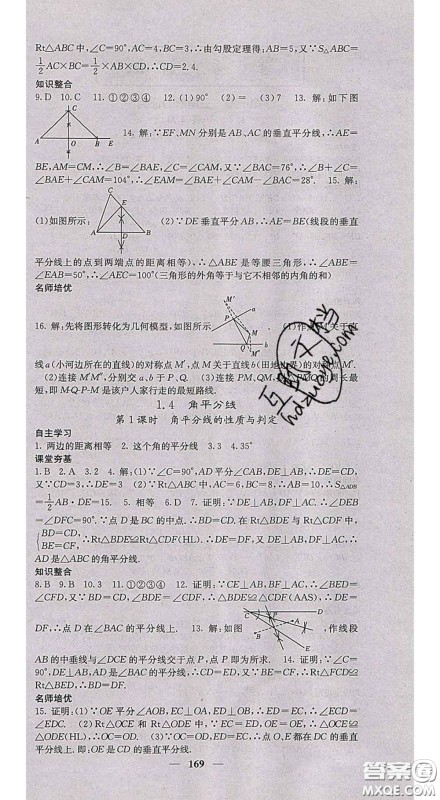 Rt△ABC中,∠C=90°,AC=4,BC=3,∴由勾股定理得:AB=5,又∵S△ABC=
1/2 AC×BC=1/2×AB×CD,∴CD=2.4.
知识整合
9.D 10.C 11.①②③④ 12.(1)90° (2)= (3)7 13.解:如下图
14.解:∵EF、MN分别是AB、AC的垂直平分线,∴AE=
BE,AM=CM,∴∠B=∠BAE,∠C=∠CAM.又∵∠BAC=76°,∴∠B+∠C=
∠BAE+∠CAM=104°,∴∠EAM=∠BAE+∠CAM-∠BAC=28°. 15.解:
(1)如图所示: (2)∵DE垂直平分AB,∴AE=BE(线段的垂直
平分线上的点到两端点的距离相等),∴△ABE是等腰三角形,∴∠ABE=
∠EAB=50°,∴∠AEC=100°(三角形的外角等于与它不相邻的内角的和)
名师培优
16.解:先将图形转化为几何模型,如图所示. (1)作点M关于直
线a(小河边所在的直线)的对称点M′,点M关于直线b(田地边界)的
M″. (2)连接M′M″,分别交a、b于P、Q. (3)连接PM、QM,
短,即M-Q-P-M是这户人家行走的最短路线.
1.4 角平分线
第1课时 角平分线的性质与判定
自主学习
1.两边的距离相等 2.这个角的平分线上
课堂夯基
1.B 2.A 3.2 4.解:(1)∵∠C=90°,AD平分∠CAB,DE⊥AB,∴DE=CD,
又∵CD=3,∴DE=3 (2)在Rt△ABC中,AC=6,BC=8,∴AB=10,∴S△ADB
=1/2 AB·DE=15. 5.相等 6.D 7.证明:∵DE⊥AB,DF⊥AC,∴∠BED
=∠DFC=90°.∵点D是BC的中点,∴BD=CD.在Rt△BDE与Rt△CDF中,
{BD=CD, BE=CF,∴Rt△BDE≌Rt△CDF(HL).∴DE=DF,又DE⊥AB,DF⊥AC,∴
AD是△ABC的角平分线.
知识整合
8.B 9.B 10.3 11.①③④ 12.证明:∵CE⊥AB,BF⊥AC,∴∠BED=
∠CFD,又∵∠BDE=∠CDF,BD=CD,∴△BDE≌△CDF(AAS),∴DE=
DF,∴点D在∠BAC的平分线上. 13.解:如图 ,作线段
AB的中垂线与∠DCE的平分线交于点P,点P即为所求. 14.证明:∵∠C=
90°,DE⊥AB,AD平分∠BAC,∴DE=DC,∠BED=∠C=90°,∵BD=FD,
∴Rt△BDE≌Rt△FDC,∴BE=FC.
名师培优
15.证明:(1)∵OE平分∠AOB,EC⊥OA,ED⊥OB,∴EC=ED,∴∠ECD=
∠EDC. (2)在Rt△OCE和Rt△ODE中,∵EC=ED,OE=OE,∴Rt△OCE≌
Rt△ODE(HL),∴OC=OD. (3)∵OC=OD,EC=ED,∴点O、E都在DC的垂
直平分线上.即:OE是CD的垂直平分线.
169
答案圈
MXQE.COM